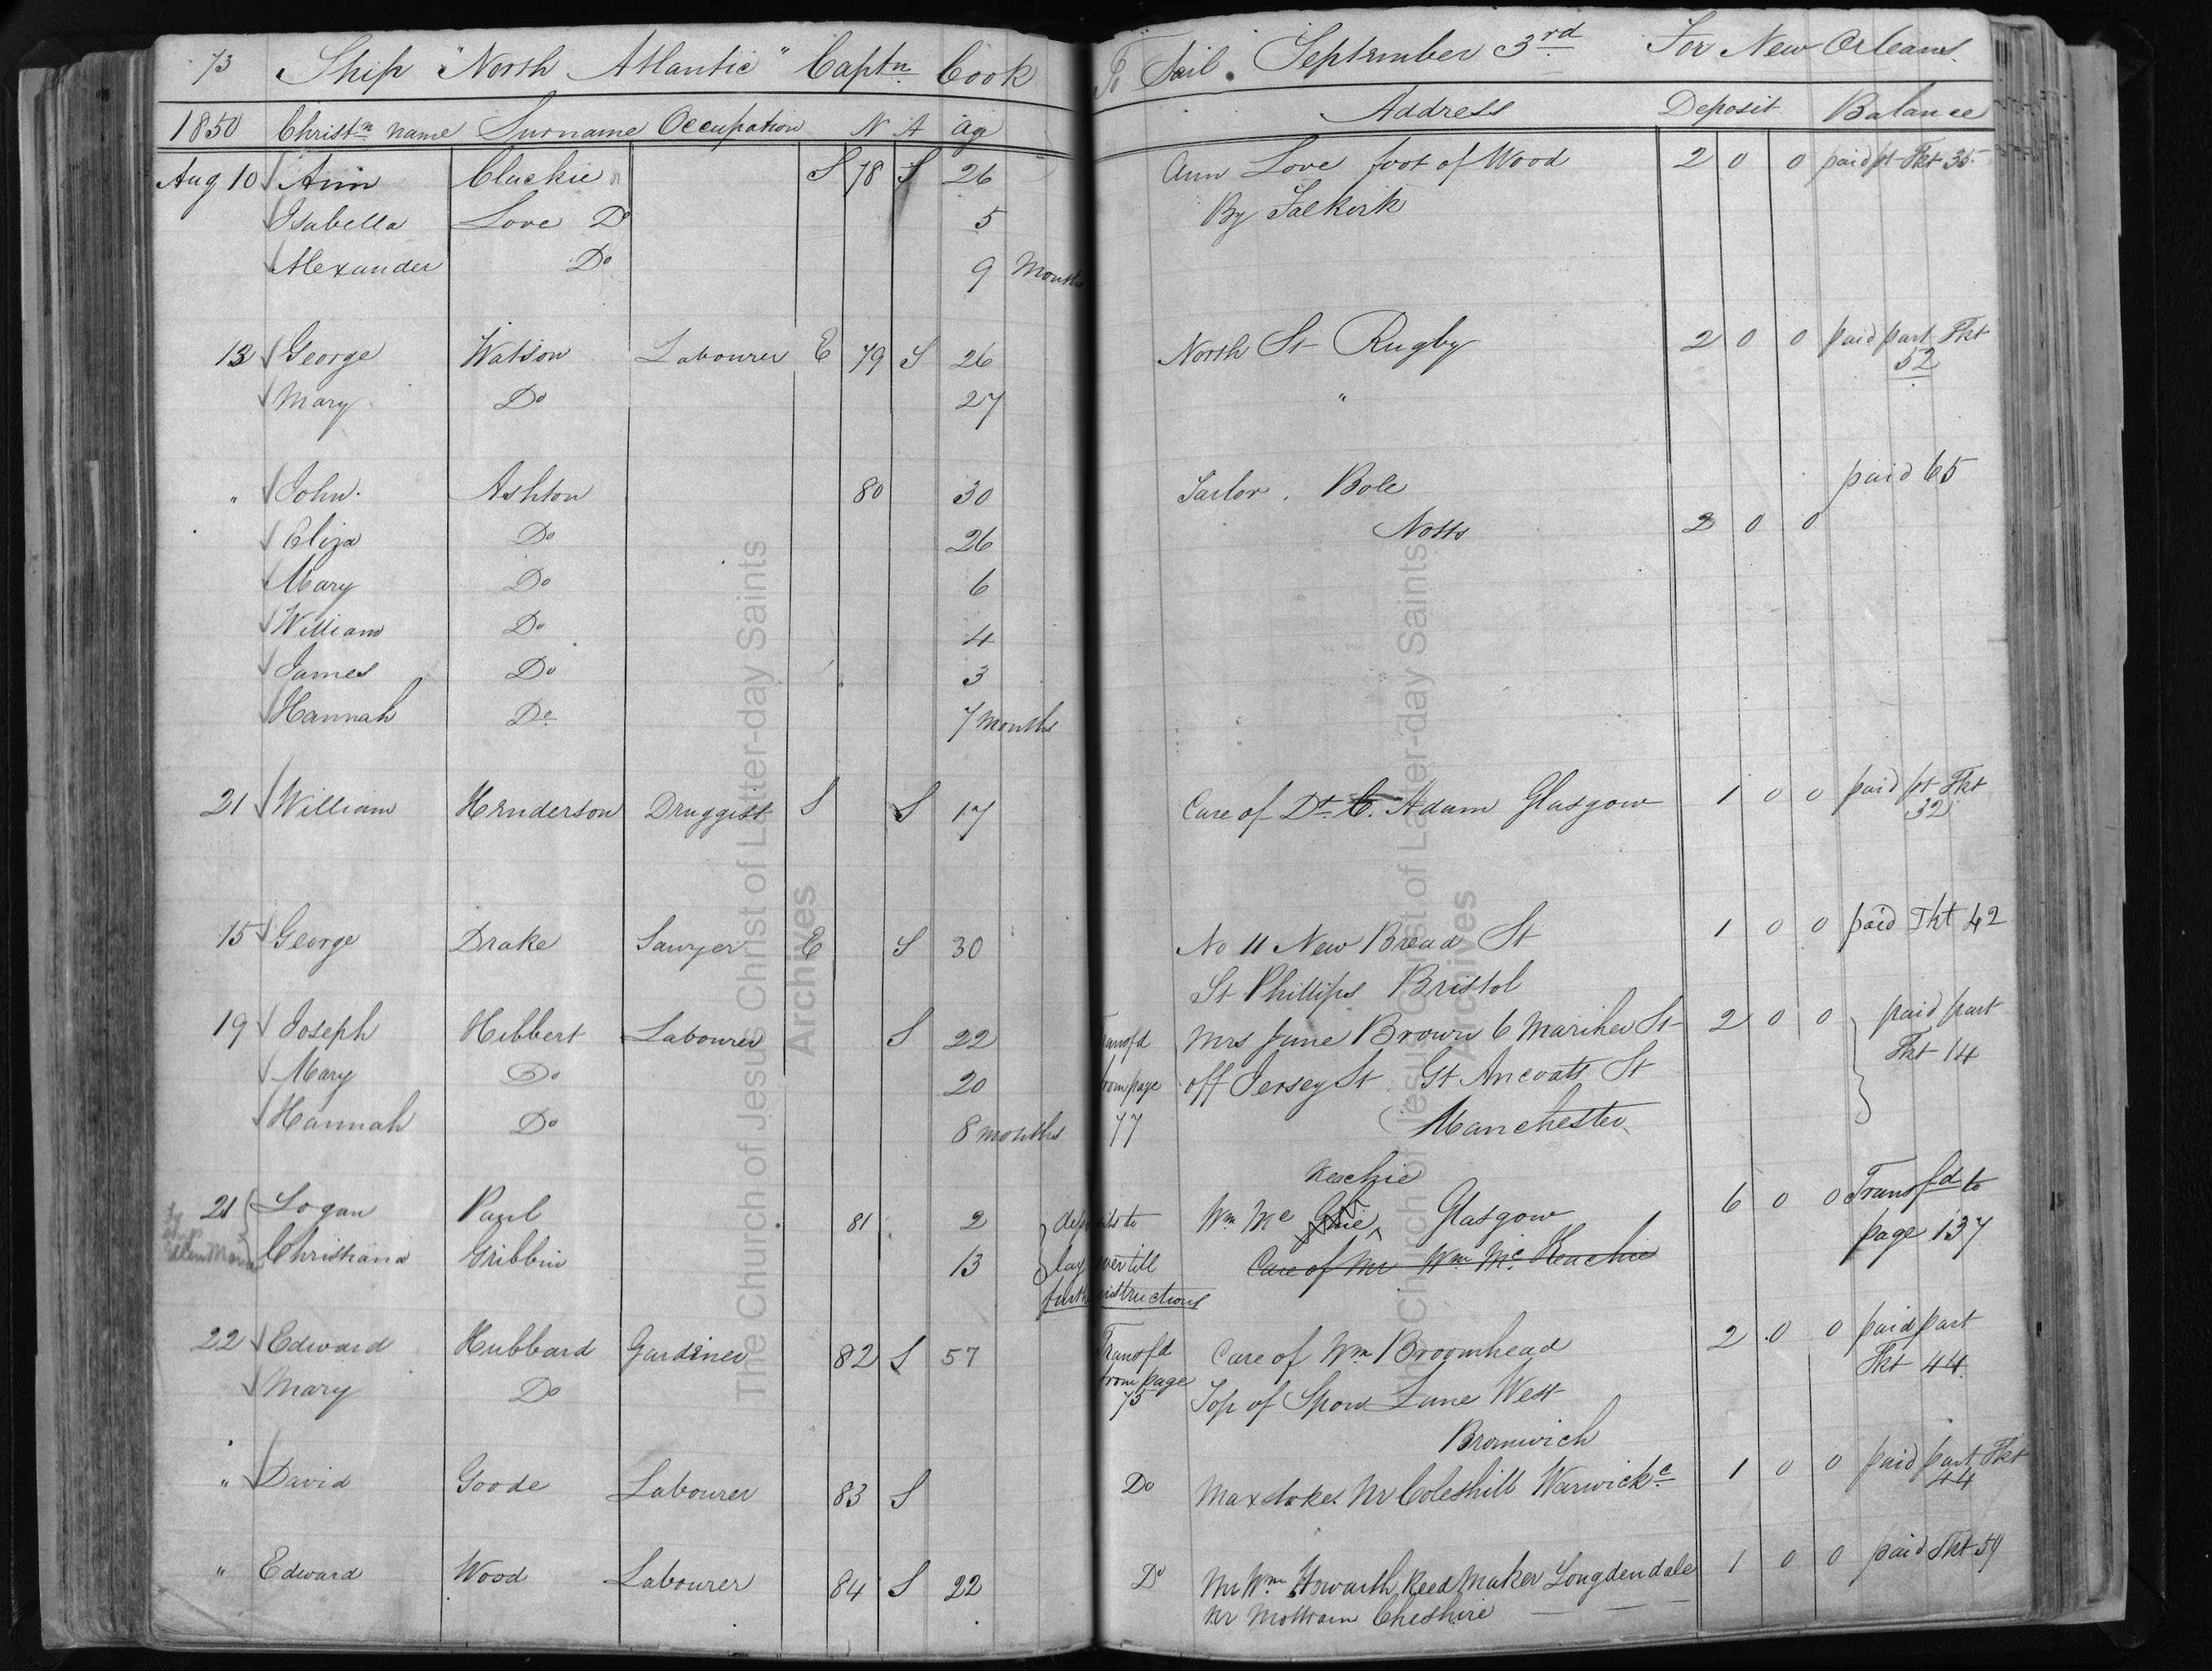 73 Ship "North Atlantic" Captn Cook To Sail. September 3rd For New Orleans.
1850 Christn name Surname Occupation N A Age Address Deposit Balance
Aug 10 Ann Cluckie S 78 S 26 Ann Love foot of Wood 2 0 0 paid pt Tkt 35
Isabella Love Do 5 By Falkirk
Alexander Do 9 Months
13 George Watson Labourer E 79 S 26 North St Rugby 2 0 0 paid part Tkt
52
Mary Do 27 "
" John Ashton 80 30 Tailor. Bole paid 65
Eliza Do 26 Notts 2 0 0
Mary Do 6
William Do 4
James Do 3
Hannah Do 7 months
21 William Henderson Druggist S S 17 Care of Dr C. Adam Glasgow 1 0 0 paid pt Tkt
32
15 George Drake Sawyer E S 30 No 11 New Bread St 1 0 0 paid Tkt 42
St Phillips Bristol
19 Joseph Hibbert Labourer S 22 Transfd Mrs Jane Brown 6 St 2 0 0 paid part
Mary Do 20 from page off Jersey St Gt Ancoats St Tkt 14
Hannah Do 8 months 77 Manchester
Keachie
21 Logan Paul 81 2 deposits to Wm Mc Glasgow 6 0 0 Transfd to
Christiana Gribbin 13 lay over till Care of Mr Wm Mc Keachie page 137
instructions
22 Edward Hubbard Gardiner 82 S 57 Transfd Care of Wm Broomhead 2 0 0 paid part
from page Tkt 44.
Mary Do 75 Top of Spon Lane West
Bromwich
" David Goode Labourer 83 S Do Maxstoke Nr Coleshill Warwick 1 0 0 paid part Tkt
44
" Edward Wood Labourer 84 S 22 Do Mr Wm Howarth, Reed Maker Longdendale 1 0 0 paid Tkt 59
nr Mottram Cheshire
The Church of Jesus Christ of Latter-day Saints
Archives
The Church of Jesus Christ of Latter-day Saints
Archives